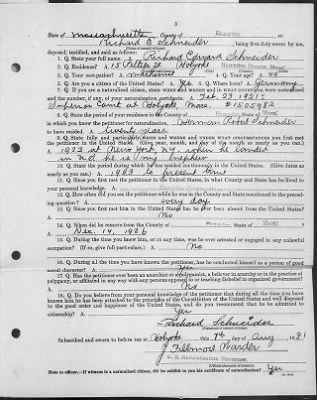 3
State of Massachusetts County of Hampden ss:
Richard E Schneider being first duly sworn by me,
deposed, testified, and said as follows:
1. Q. State your full name. A. Richard Edward Schneider
2. Q. Residence? A. 15 St Holyoke Hampden County, Mass.
3. Q. Your occupation? A. machinist 4. Q. Your age? A. 49
5. Q. Are you a citizen of the United States? A. Yes 6. Q. Where were you born? A. Germany
7. Q. If you are a naturalized citizen, state when and in what court and where you were naturalized
and the number, if any, of your naturalization certificate? A. Feb. 23, 1921
Superior Court at Holyoke, Mass. #1505982
8. Q. State the period of your residence in the county of Hampden State of Mass. in
which you know the petitioner for naturalization, Herman Robt Schneider
to have resided. A. twenty years
petitioner? A.
1923 at New York N.Y. when he landed
in U.S. he is my nephew
10. Q. State the period during which he has resided continuously in the United States. (Give dates as
nearly as you can.) A. 1923 to present time
11. Q. Since you first met him in the United States, in what County and State has he lived to
your personal knowledge. A.
12. Q. How often did you see the petitioner while he was in the County and State mentioned in the preceding
question? A. every day
13. Q. Since you first met him in the United States has he ever been absent from the United States?
A. No
14. Q. When did he remove from the County of Hampden, State of Mass.?
A. Dec. 14, 1926
15. Q. During the time you know him, or at any time, was he ever arrested or engaged in any unlawful
occupation? (If so, give full particulars.) A. No
16. Q. During all the time you have known the petitioner, has he conducted himself as a person of good
moral character? A. yes
17. Q. Has the petitioner ever been an anarchist or polygamist, a believer in anarchy or in the practice of
polygamy, or affiliated in any way with any persons opposed to or teaching disbelief in organized government?
A. No
18. Q. Do you believe from your personal knowledge of the petitioner that during all the time you have
known him he has been attached to the principles of the Constitution of the United States and well disposed
to the good order and happiness of the United States, and do you recommend that he be admitted to
citizenship? A. Yes
Richard Schneider
Subscribed and sworn to before me at Holyoke this 7th day of Aug 1931
J. Fillmore Warder
U. S. Naturalization Examiner
Note to officer.—If witness is a naturalized citizen, did he exhibit to you his certificate of naturalization? Yes